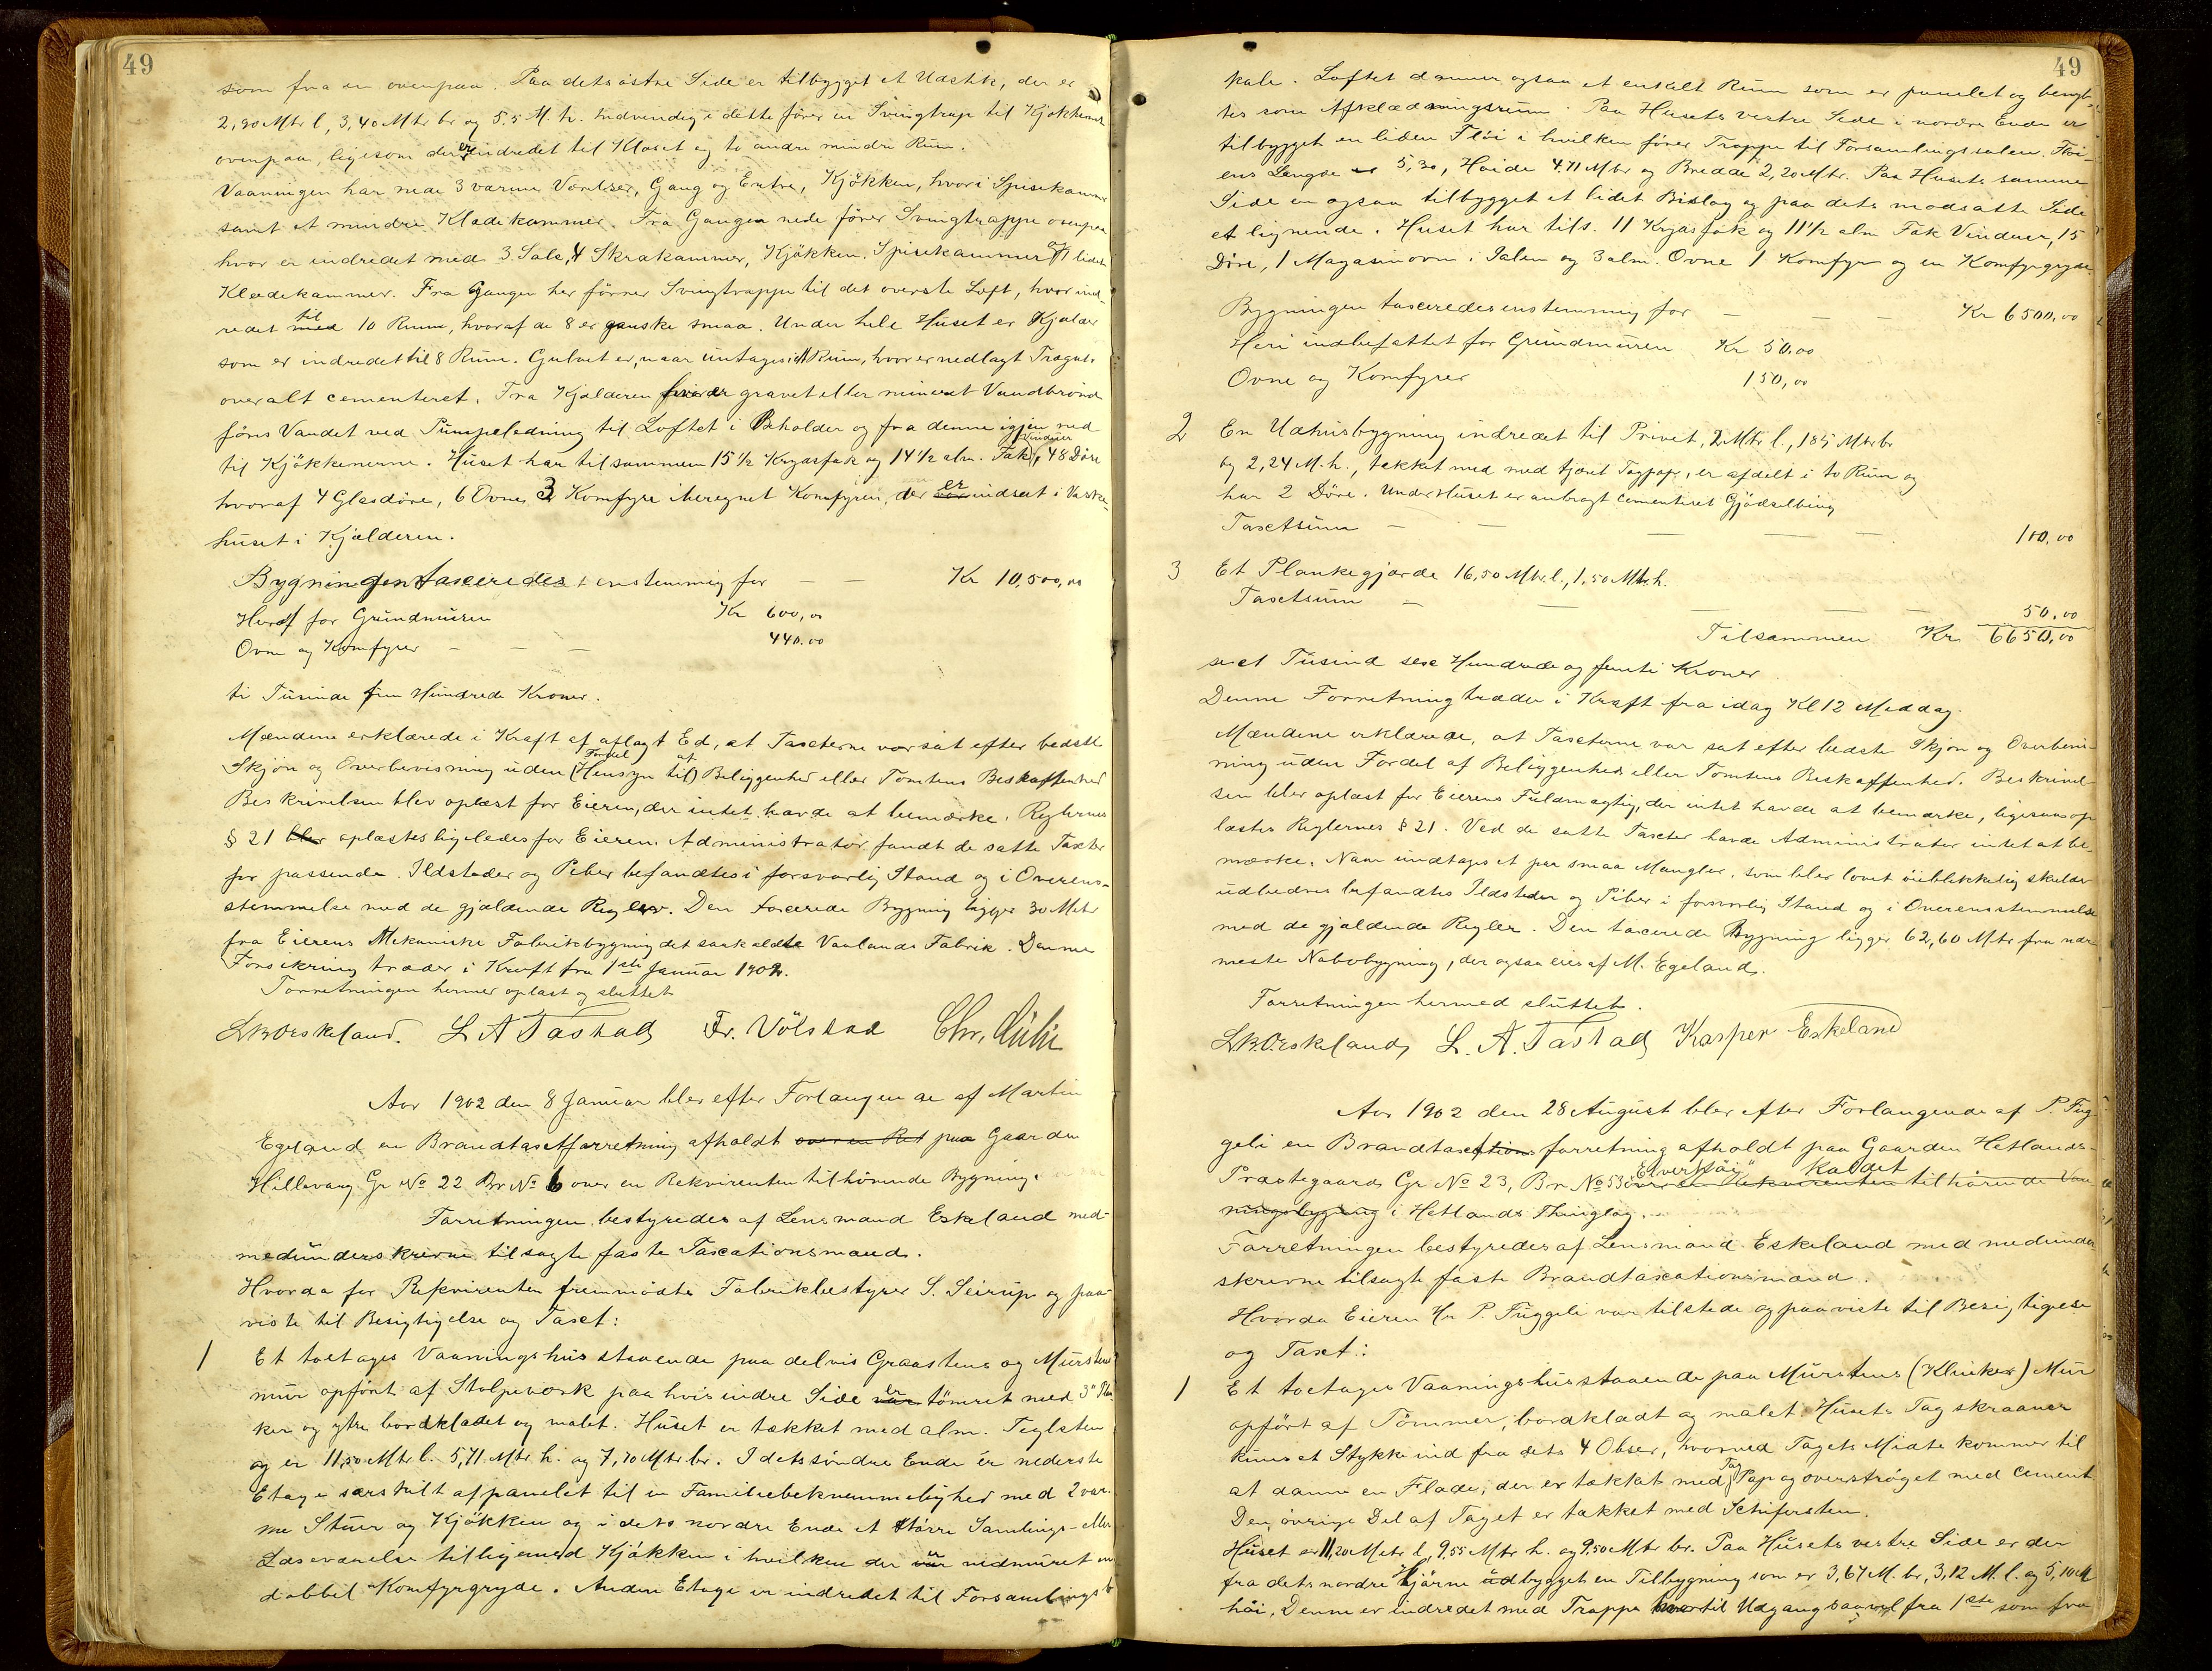 49
som fra en ovenpaa. Paa dets østre Side er tilbygget et Udstik, der er
2,90 Mtr l, 3,40 Mtr br og 5.5 M. h. Indvendig i dette fører en Svingtrap til Kjøkkenet
ovenpaa, ligesom der er indredet til Kloset og to andre mindre Rum.
Vaaningen har nede 3 varme Værelser, Gang og Entre, Kjøkken, hvori Spisekammer
samt et mindre Klædekammer. Fra Gangen nede fører Svingtrappe ovenpaa
hvor er indredet med 3 Sale, 4 Skraakammer, Kjøkken, Spisekammer og 1 lidet
Klædekammer. Fra Gangen her fører Svingtrappe til det øverste Loft, hvor ind-
redet med til 10 Rum, hvoraf de 8 er ganske smaa. Under hele Huset er Kjælder
som er indredet til 8 Rum. Gulvet er, naar undtages i 1 Rum, hvor er nedlagt Trægulv,
overalt cementeret. Fra Kjælderen hvor er gravet eller mineret Vandbrønd
føres Vandet ved Pumpeledning til Loftet i Beholder og fra denne igjen ned
til Kjøkkenerne. Huset har tilsammen 15 1/2 Krydsfak og 14 1/2 alm. Fak Vinduer, 48 Døre
hvoraf 4 Glasdøre, 6 Ovne, 3 Komfyre iberegnet Komfyren, der var er indsat i Vaske-
huset i Kjælderen.
Bygningen taxeredes enstemmig for — — Kr 10,500,00
Heraf for Grundmuren Kr 600,00
Ovne og Komfyrer — — — 440.00
ti Tusinde fem Hundrede Kroner.
Mændene erklærede i Kraft af aflagt Ed, at Taxterne var sat efter bedste
Skjøn og Overbevisning uden (Hensyn til) Fordel af Beliggenhed eller Tomtens Beskaffenhed
Beskrivelsen blev oplæst for Eieren, der intet havde at bemærke. Reglernes
§ 21 blev oplæstes ligeledes for Eieren. Administrator fandt de satte Taxter
for passende. Ildsteder og Piber befandtes i forsvarlig Stand og i Overens-
stemmelse med de gjældende Regler. Den taxerede Bygning ligger 30 Mtr
fra Eierens Mekaniske Fabrikbygning det saakaldte Vaalands Fabrik. Denne
Forsikring træder i Kraft fra 1ste Januar 1902.
Forretningen hermed oplæst og sluttet
L.B. Eskeland. L A Tastad Fr. Völstad Chr.
Aar 1902 den 8 Januar blev efter Forlangende af Martin
Egeland en Brandtaxtforretning afholdt over en Ret paa Gaarden
Hillevaag Gr No 22 Br No 6 over en Rekvirenten tilhørende Bygning.
Forretningen bestyredes af Lensmand Eskeland med
medunderskrevne tilsagte faste Taxationsmænd.
Hvorda for Rekvirenten fremmødte Fabrikbestyrer S. Seirup og paa-
viste til Besigtigelse og Taxt:
1 Et toetages Vaaningshus staaende paa delvis Graastens og Murstens
mur opført af Stolpeværk paa hvis indre Side var er tømret med 3" Plan
ker og ytre bordklædet og malet. Huset er tækket med alm. Teglsten
og er 11,50 Mtr l. 5,71 Mtr. h. og 7,70 Mtr. br. I dets søndre Ende er nederste
Etage særskilt afpanelet til en Familiebekvemmelighed med 2 var-
me Stuer og Kjøkken og i dets nordre Ende et større Samlings- eller
Læseværelse tilligemed Kjøkken i hvilken der var er nedmuret en
dobbel Komfyrgryde. Anden Etage er indredet til Forsamlings
49
kale. Loftet danner ogsaa et enkelt Rum som er panelet og benyt-
tes som Afklædningsrum. Paa Husets vestre Side i nordre Ende er
tilbygget en liden Fløi i hvilken fører Trappe til Forsamlingssalen. Fløi-
ens Længde er 5,30, Høide 4.71 Mtr og Bredde 2,20 Mtr. Paa Husets samme
Side er ogsaa tilbygget et lidet Bislag og paa dets modsatte Side
et lignende. Huset har tils. 11 Krydsfak og 11 1/2 alm Fak Vinduer, 15
Døre, 1 Magasinovn i Salen og 3 alm. Ovne 1 Komfyr og en Komfyrgryde.
Bygningen taxeredes enstemmig for — — — Kr 6500,00
Heri indbefattet for Grundmuren Kr 50.00
Ovne og Komfyrer 150,00
2 En Udhusbygning indredet til Privet, 2 Mtr l., 1,85 Mtr br
og 2,24 M. h., tækket med med tjæret Tagpap, er afdelt i to Rum og
har 2 Døre. Under Huset er anbragt cementeret Gjødselbing
Taxtsum — — — — 100,00
3 Et Plankegjærde 16,50 Mtr. l., 1,50 Mtr. h.
Taxtsum — — — — — 50,00
Tilsammen Kr 6650,00
sext Tusind sex Hundrede og femti Kroner
Denne Forretning træder i Kraft fra idag Kl 12 Middag.
Mændene erklærede, at Taxterne var sat efter bedste Skjøn og Overbevis-
ning uden Fordel af Beliggenhed eller Tomtens Beskaffenhed. Beskrivel-
sen blev oplæst for Eierens Fuldmægtig, der intet havde at bemærke, ligesaa op-
læstes Reglernes § 21. Ved de satte Taxter havde Administrator intet at be-
mærke. Naar undtages et par smaa Mangler, som blev lovet øieblikkelig skulde
udbedres befandtes Ildsteder og Piber i forsvarlig Stand og i Overensstemmelse
med de gjældende Regler. Den taxerede Bygning ligger 62,60 Mtr fra nær-
meste Nabobygning, der ogsaa eies af M. Egeland.
Forretningen hermed sluttet.
L.B. Eskeland, L. A. Tastad Kasper Eskeland
Aar 1902 den 28 August blev efter Forlangende af P. Fug-
geli en Brandtaxtions forretning afholdt paa Gaarden Hetlands-
Præstegaard Gr No 23, Br No 53 over en Rekvirenten tilhørende Vaa "Elverhøi" kaldet
ningsbygning i Hetlands Thinglag.
Forretningen bestyredes af Lensmand Eskeland med medunder
skrevne tilsagte faste Brandtaxationsmænd.
Hvorda Eieren Hr P. Fuggeli var tilstede og paaviste til Besigtigelse
og Taxt:
1 Et toetages Vaaningshus staaende paa Murstens (Klinker) Mur
opført af Tømmer, bordklædt og malet. Husets Tag skraaner
kuns et Stykke ind fra dets 4 Obser, hvorved Tagets Midte kommer til
at danne en Flade, der er tækket med Tag Pap og overstrøget med Cement
Den øvrige Del af Taget er tækket med Schifersten.
Huset er 11,20 Mtr l, 9,55 Mtr h. og 9,50 Mtr br. Paa Husets vestre Side er der
fra dets nordre Hjørne udbygget en Tilbygning som er 3,67 M. br, 3,12 M. l. og 5,10 M
høi. Denne er indredet med Trappe til Udgang saavel fra 1ste som fra